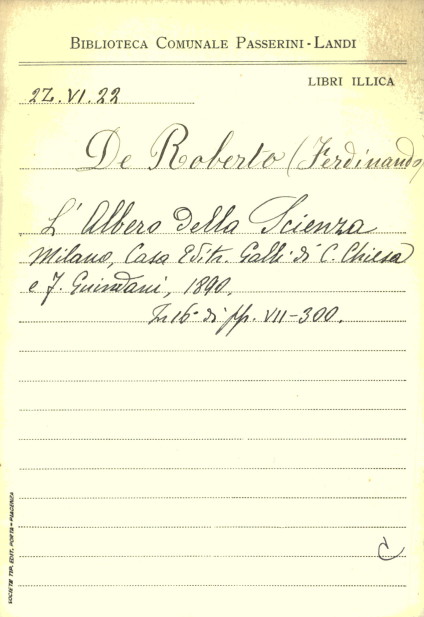 BIBLIOTECA COMUNALE PASSERINI-LANDI
LIBRI ILLICA
2Z.VI.22
De Roberto (Ferdinando)
L'Albero della Scienza
Milano, Casa Editr. Galli di C. Chiesa
e F. Guindani, 1890.
In 16° di pp. VII-300.
C
SOCIETÀ TIP. EDIT. PORTA-PIACENZA